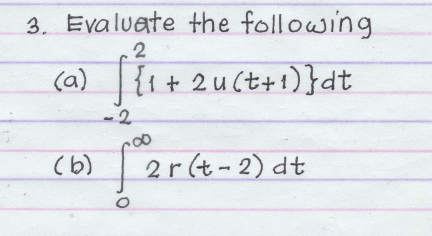 3. Evaluate the following
(a) ∫_{-2}^{2} {1 + 2u(t+1)}dt
(b) ∫_{0}^{∞} 2r(t-2) dt